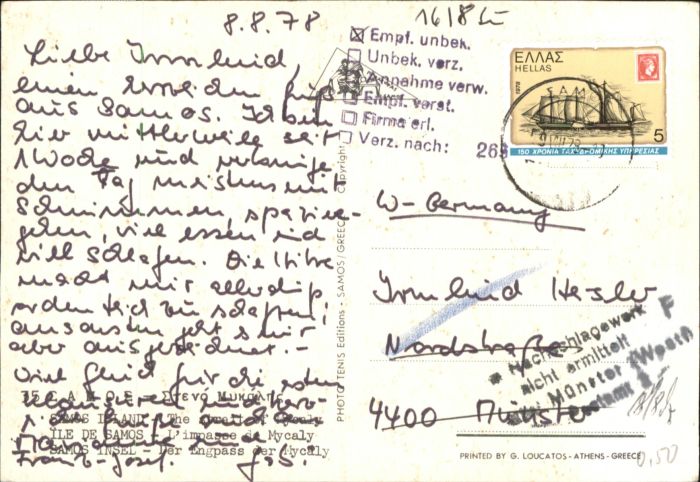 8.8.78
Liebe Irmlind,
einen Gruß
aus Samos. Ich bin
hier mittlerweile seit
1 Woche und
den Tag meistens mit
Schwimmen, spazie-
gehen, viel essen und
viel schlafen. Die Hitze
macht mir allerdings
ordentlich zu schaffen;
ansonsten geht's mir
aber ausgezeichnet.-
Viel Glück für die
und
Franz-Josef.
S A M O S - Στενό Μυκάλης
SAMOS ISLAND - The strait of Mycaly
ILE DE SAMOS - L'impasse de Mycaly
SAMOS INSEL - Der Engpass der Mycaly
PHOTO TENIS Editions - SAMOS / GREECE Copyright
16/8
☒ Empf. unbek.
☐ Unbek. verz.
☐ Annahme verw.
☐ Empf. verst.
☐ Firma erl.
☐ Verz. nach:
265
ΕΛΛΑΣ
HELLAS
1978
5
150 ΧΡΟΝΙΑ ΤΑΧΥΔΡΟΜΙΚΗΣ ΥΠΗΡΕΣΙΑΣ
W-Germany
Irmlind Hesler
Nordstraße
4400 Münster
F
Nachschlagewerk
nicht ermittelt
Münster (Westf)
PRINTED BY G. LOUCATOS - ATHENS - GREECE
0,50